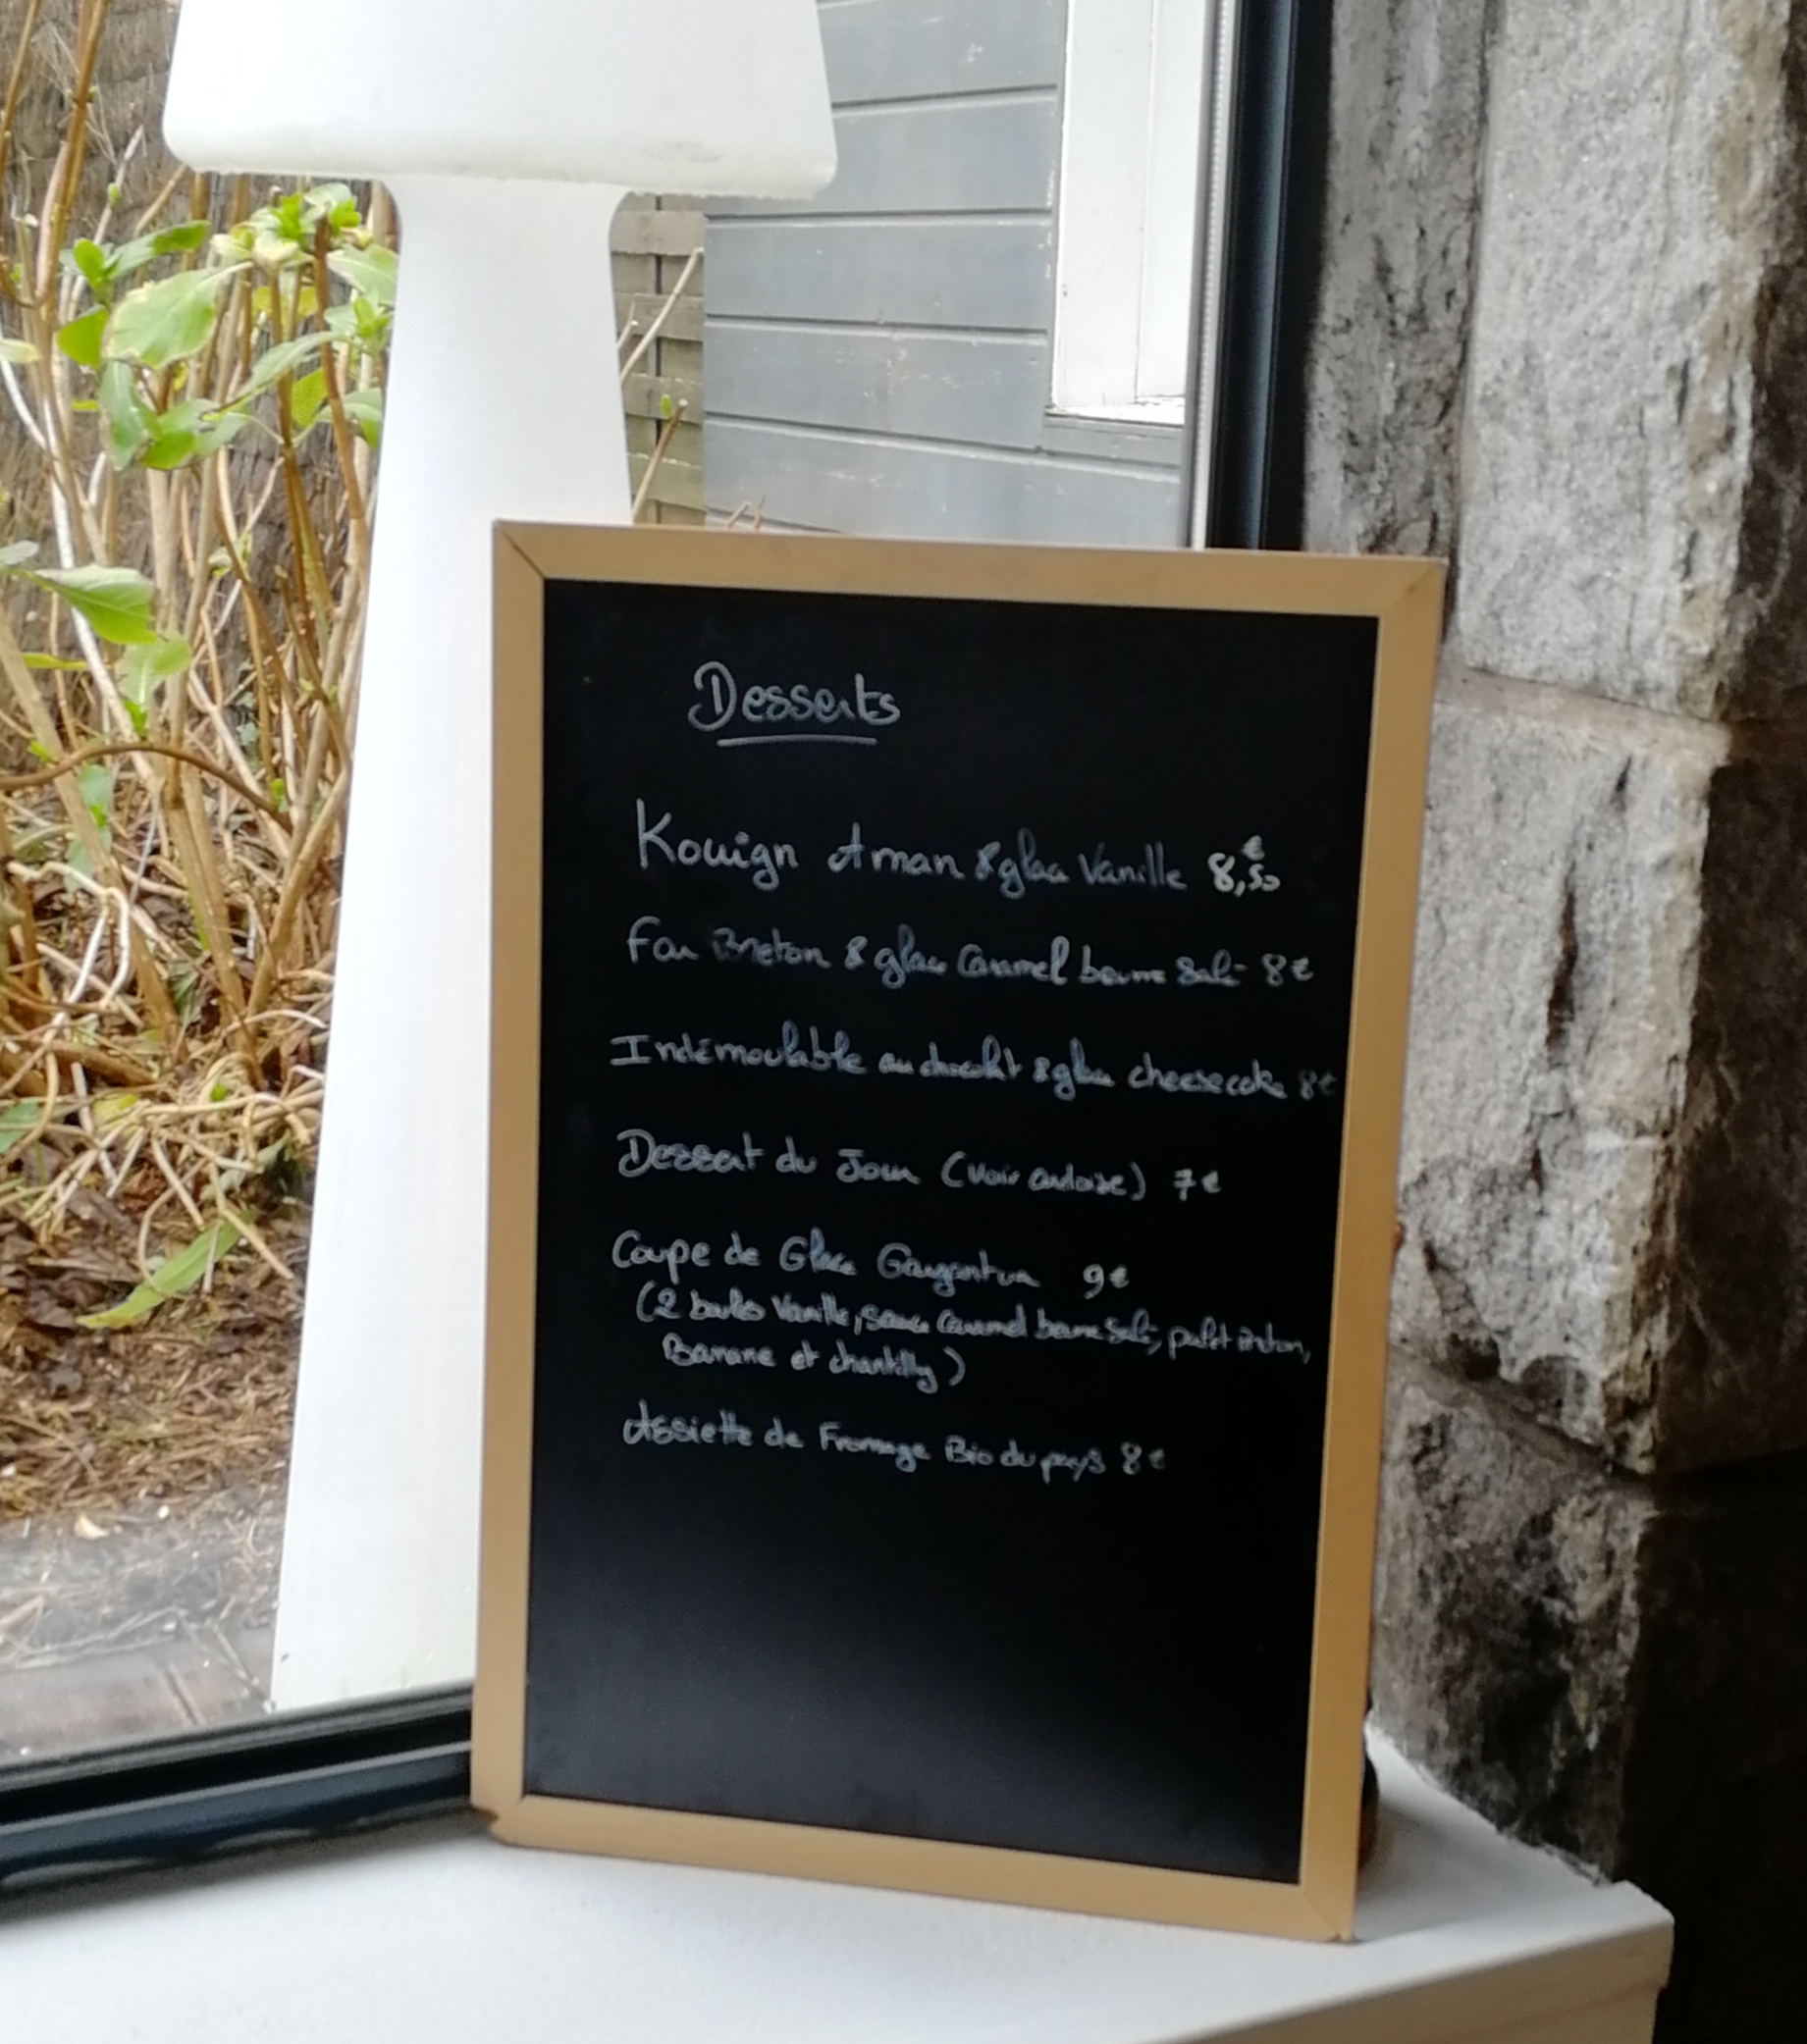 Desserts
Kouign Aman & glace Vanille 8,50 €
Far Breton & glace Caramel beurre Salé 8€
Indémoulable au chocolat & glace cheesecake 8€
Dessert du Jour (voir ardoise) 7€
Coupe de Glace Gargantua 9€
(2 boules Vanille, sauce Caramel beurre Salé, palet breton,
Banane et chantilly)
Assiette de Fromage Bio du pays 8€